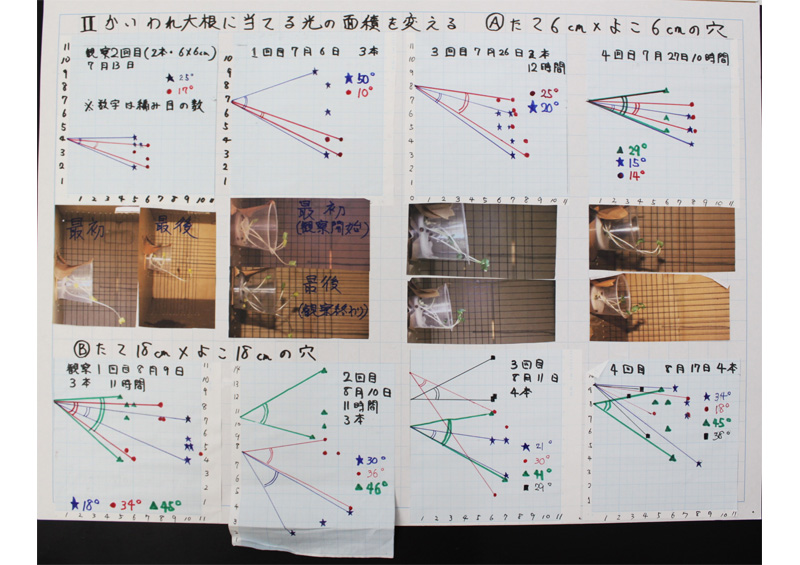 Ⅱ かいわれ大根に当てる光の面積を変える Ⓐたて6cm×よこ6cmの穴
観察2回目(2本・6×6cm)
7月13日
★25°
●17°
※数字は編み目の数
1回目7月6日 3本
★50°
●10°
3回目7月26日2本
12時間
●25°
★20°
4回目7月27日10時間
▲29°
★15°
●14°
最初
最後
最初
(観察開始)
最後
(観察終わり)
Ⓑたて18cm×よこ18cmの穴
観察1回目8月9日
3本 11時間
★18° ●34° ▲45°
2回目
8月10日
11時間
3本
★30°
●36°
▲46°
3回目
8月11日
4本
★21°
●30°
▲41°
■29°
4回目 8月17日4本
★34°
●18°
▲45°
■38°